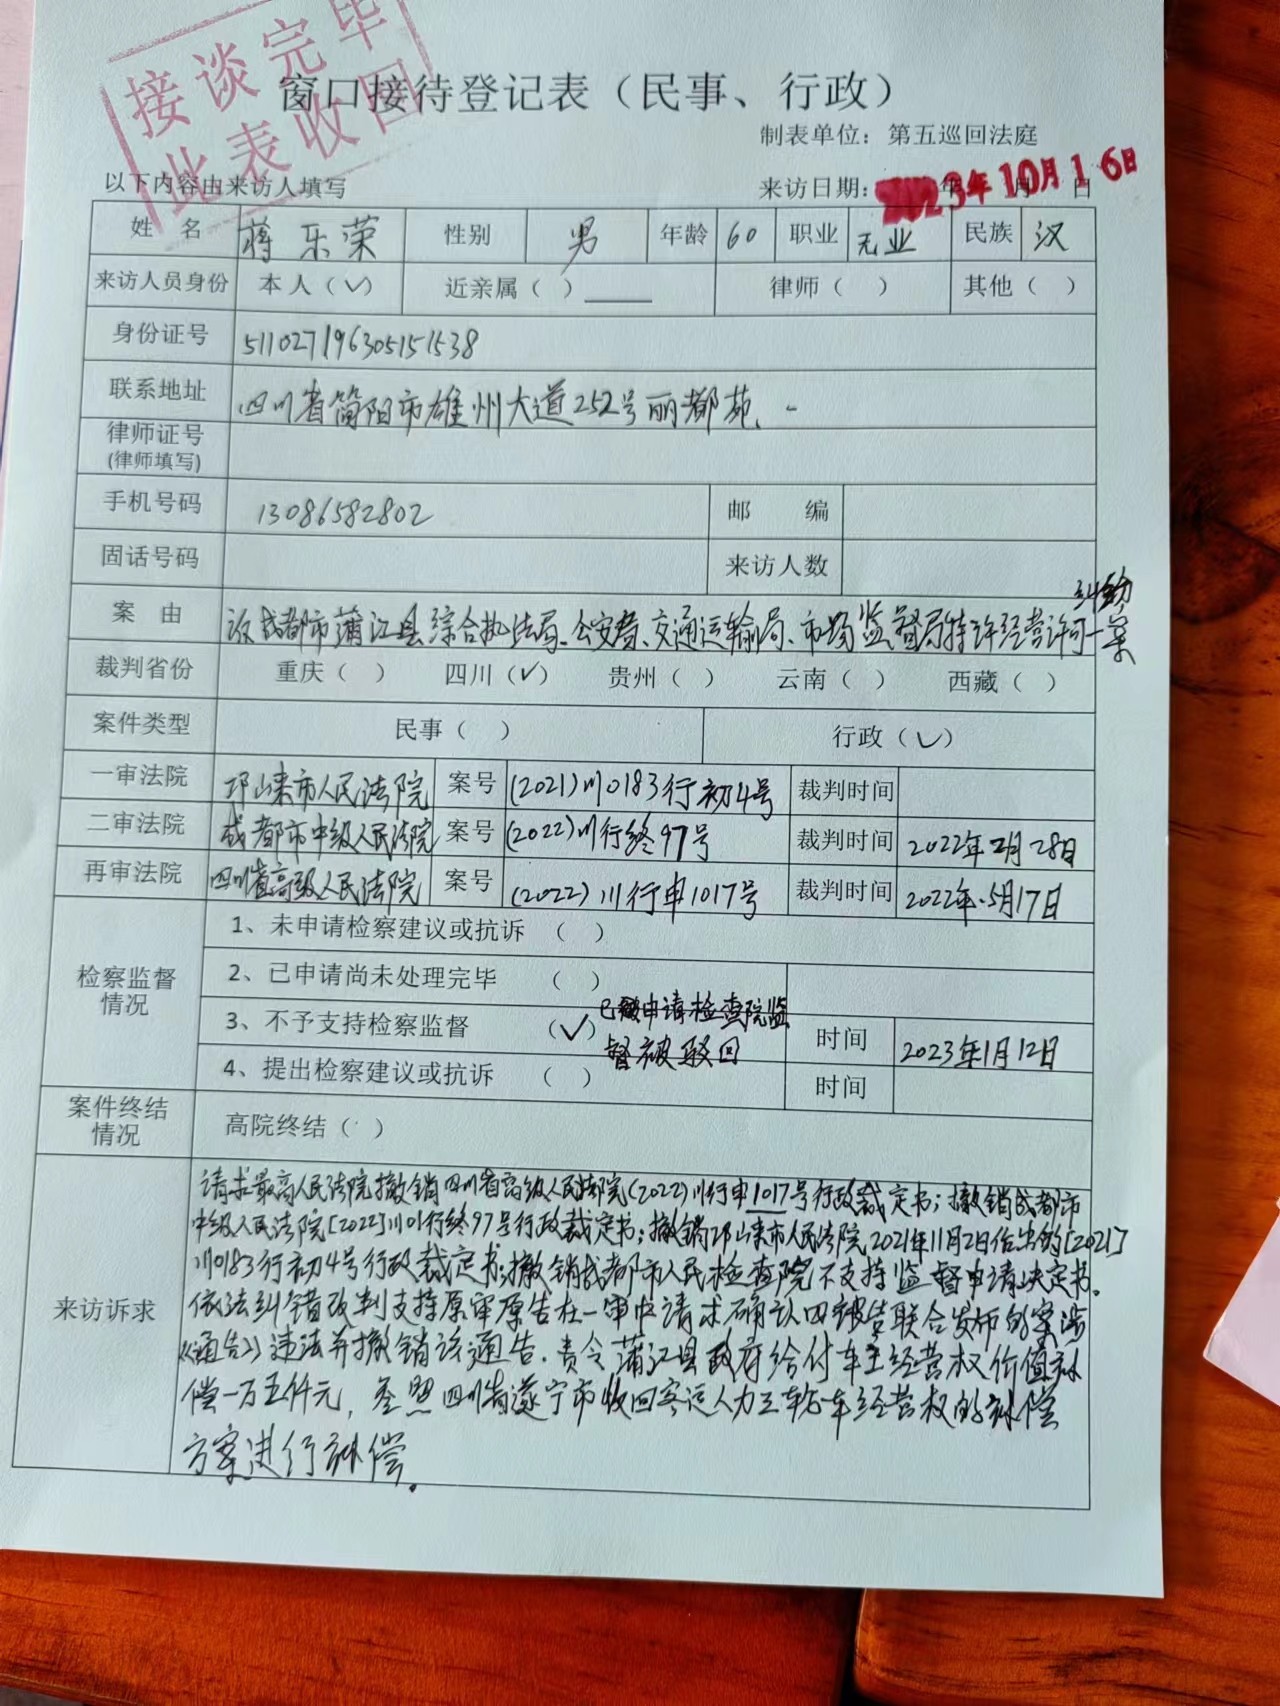 接谈完毕
此表收回
窗口接待登记表（民事、行政）
制表单位：第五巡回法庭
以下内容由来访人填写 来访日期：2023年10月16日
姓 名 蒋乐荣 性别 男 年龄 60 职业 无业 民族 汉
来访人员身份 本人（✓） 近亲属（ ）____ 律师（ ） 其他（ ）
身份证号 511027196305151538
联系地址 四川省简阳市雄州大道252号丽都苑.
律师证号
(律师填写)
手机号码 13086582802 邮 编
固话号码 来访人数
案 由 诉成都市蒲江县综合执法局、公安局、交通运输局、市场监督局特许经营许可纠纷一案
裁判省份 重庆（ ） 四川（✓） 贵州（ ） 云南（ ） 西藏（ ）
案件类型 民事（ ） 行政（✓）
一审法院 邛崃市人民法院 案号 (2021)川0183行初4号 裁判时间
二审法院 成都市中级人民法院 案号 (2022)川行终97号 裁判时间 2022年2月28日
再审法院 四川省高级人民法院 案号 (2022)川行申1017号 裁判时间 2022年.5月17日
检察监督
情况
1、未申请检察建议或抗诉 （ ）
2、已申请尚未处理完毕 （ ）
3、不予支持检察监督 （✓） 已申请检查院监
督被驳回 时间 2023年1月12日
4、提出检察建议或抗诉 （ ） 时间
案件终结
情况
高院终结（ ）
来访诉求
请求最高人民法院撤销四川省高级人民法院(2022)川行申1017号行政裁定书；撤销成都市
中级人民法院[2022]川01行终97号行政裁定书；撤销邛崃市人民法院2021年11月2日作出的[2021]
川0183行初4号行政裁定书；撤销成都市人民检查院不支持监督申请决定书。
依法纠错改判支持原审原告在一审中请求确认四被告联合发布的案涉
《通告》违法并撤销该通告.责令蒲江县政府给付车主经营权价值补
偿一万五仟元，参照四川省遂宁市收回客运人力三轮车经营权的补偿
方案进行补偿.